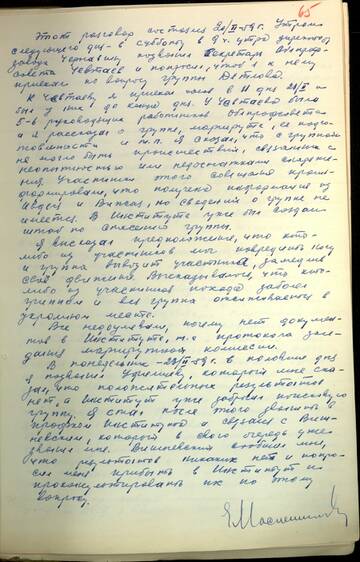 65
Этот разговор состоялся 20/II-59г. Утром
следующего дня - в субботу в 9 ч. утра директору
завода Чернавину позвонил секретарь
совета Чевтаев и попросил, чтоб я к нему
приехал по вопросу группы Дятлова.
К Чевтаеву я приехал часов в 11 дня 21/II и
был у них до конца дня. У Чевтаева было
5-6 руководящих работников Облпрофсовета
и я рассказал о группе, маршруте, её подго-
товленности и т.п. Я сказал, что с группой
не могло быть происшествий, связанных с
неопытностью или недостатками снаряже-
ния. Участники этого совещания проин-
формировали, что получено подтверждение из
Авдей и Вижая, но сведений о группе не
имеется. В Институте уже был создан
штаб по спасению группы.
Я высказал предположения, что кто-
либо из участников мог повредить ногу
и группа вывозит участника, замедлив
своё движение. Высказывалось, что кто-
либо из участников похода заболел
гриппом и вся группа отсиживается в
укромном месте.
Все недоумевали, почему нет докумен-
тов в Институте, т.е. протокола засе-
дания маршрутной комиссии.
В понедельник - 23/II-59г. в половине дня
я позвонил Уфимцеву, который мне ска-
зал, что положительных результатов
нет, а Институт уже забросил поисковую
группу. Я стал после этого звонить в
профком Института и связался с Виш-
невским, который в свою очередь уже
звонил мне. Вишневский сообщил мне,
что результатов никаких нет и попро-
сил меня прибыть в Институт и
проконсультировать их по этому
вопросу.
Е. Масленников